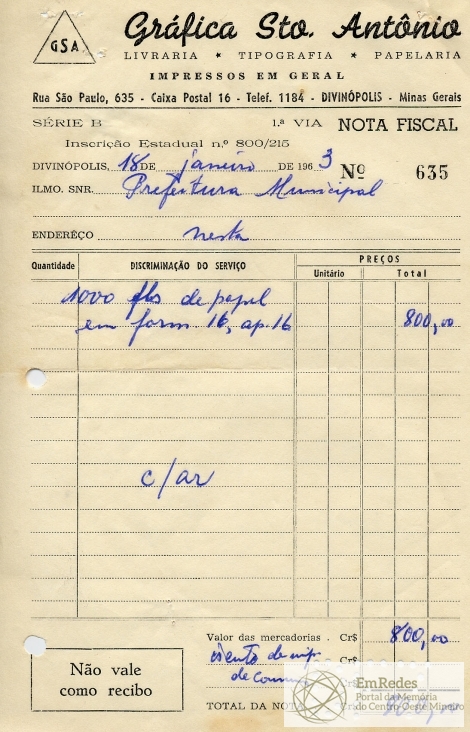 GSA
Gráfica Sto. Antônio
LIVRARIA ★ TIPOGRAFIA ★ PAPELARIA
IMPRESSOS EM GERAL
Rua São Paulo, 635 - Caixa Postal 16 - Telef. 1184 - DIVINÓPOLIS - Minas Gerais
SÉRIE B 1.ª VIA NOTA FISCAL
Inscrição Estadual n.º 800/215
DIVINÓPOLIS, 18 DE janeiro DE 1963 Nº 635
ILMO. SNR. Prefeitura Municipal
ENDERÊÇO nesta
Quantidade DISCRIMINAÇÃO DO SERVIÇO PREÇOS
Unitário Total
1000 fls de papel
em form 16, ap. 16 800,00
c/ar
Valor das mercadorias . Cr$ 800,00
isento de imp. Cr$
de
TOTAL DA NOTA Cr$
Não vale
como recibo
EmRedes
Portal da Memória
do Centro-Oeste Mineiro